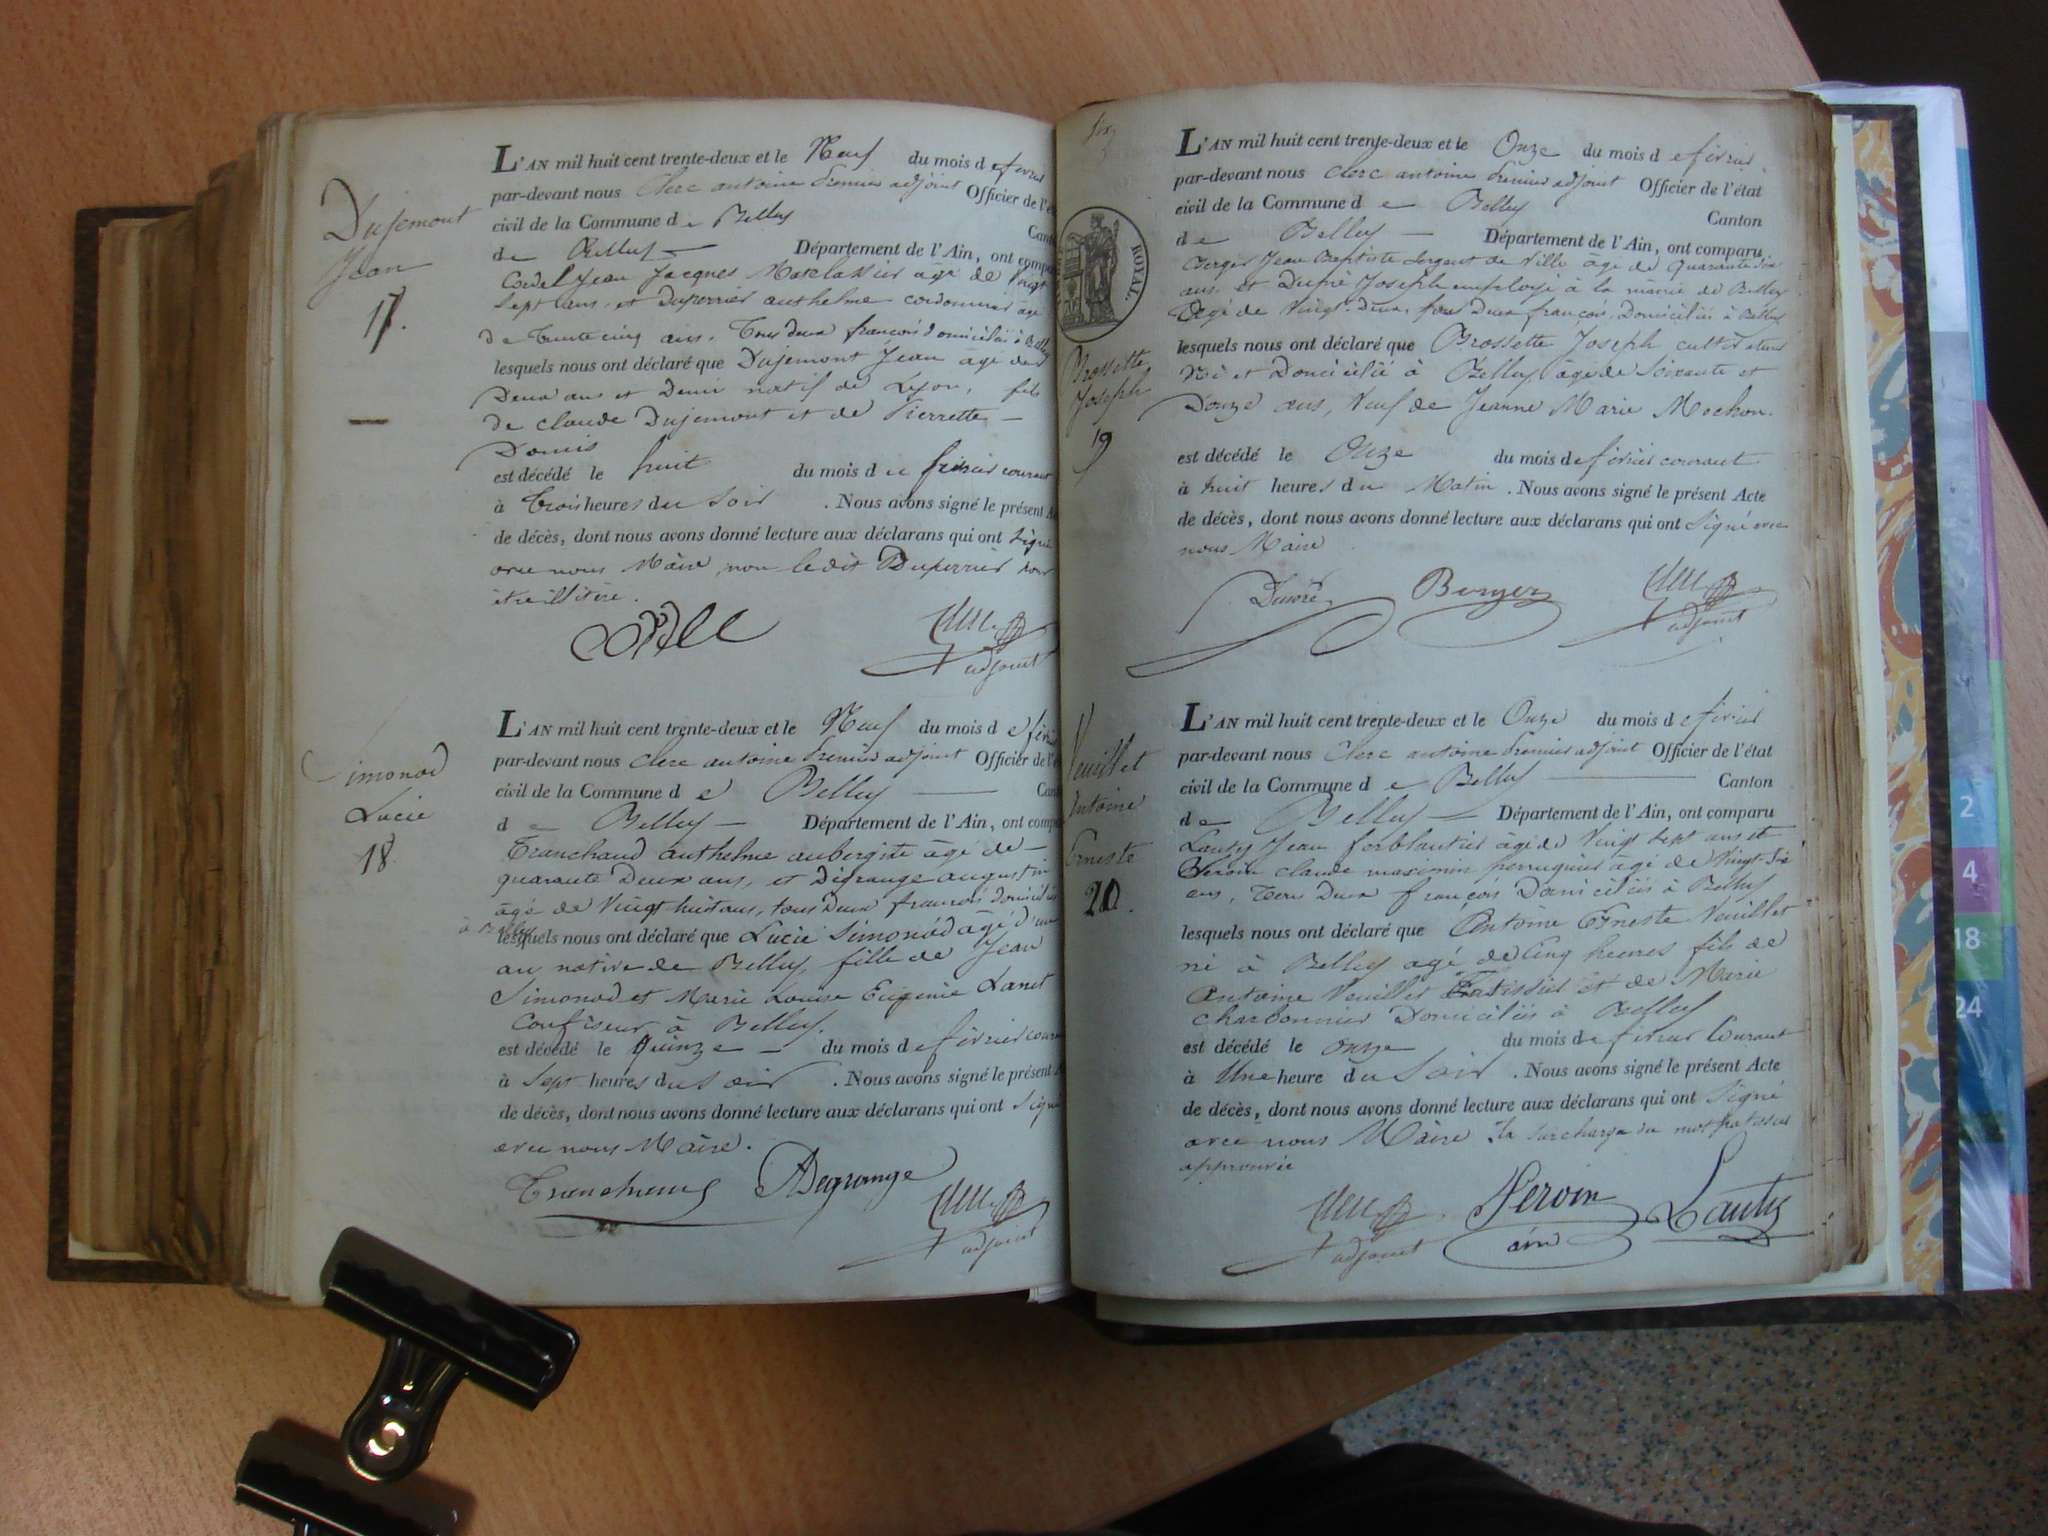 Dujemont
Jean
17.
L'AN mil huit cent trente-deux et le Neuf du mois de fevrier
par-devant nous Clerc antoine Premier adjoint Officier de l'ét
civil de la Commune de Belley
Cant
de Belley Département de l'Ain, ont compa
Jean Jacques Matelassier agé de Vingt
Sept ans, et Duperrier anthelme cordonnier agé
de trente cinq ans, tous deux françois domiciliés à Belley
lesquels nous ont déclaré que Dujemont Jean agé de
Deux ans et Demi natif de Lyon, fils
de claude Dujemont et de Pierrette
est décédé le huit du mois de fevrier courant
à trois heures du Soir . Nous avons signé le présent A
de décès, dont nous avons donné lecture aux déclarans qui ont signé
avec nous Maire, non ledit Duperrier pour
être illitéré.
Clerc
adjoint
Simonod
Lucie
18.
L'AN mil huit cent trente-deux et le Neuf du mois de fevrier
par-devant nous Clerc antoine Premier adjoint Officier de l'é
civil de la Commune de Belley Cant
de Belley Département de l'Ain, ont compa
Tranchand anthelme aubergiste âgé de
quarante Deux ans, et Dégrange augustin
âgé de Vingt huit ans, tous Deux françois domiciliés
à Belley
lesquels nous ont déclaré que Lucie Simonod âgé d'un
an native de Belley, fille de Jean
Simonod et Marie Louise Eugenie Lanet
Confiseur à Belley.
est décédé le Quinze du mois de février cour
à Sept heures du Soir . Nous avons signé le présent A
de décès, dont nous avons donné lecture aux déclarans qui ont signé
avec nous Maire.
Tranchand ADegrange
Clerc
adjoint
ROYAL.
Brossette
Joseph
19
L'AN mil huit cent trente-deux et le Onze du mois de fevrier
par-devant nous Clerc antoine Premier adjoint Officier de l'état
civil de la Commune de Belley
Canton
de Belley Département de l'Ain, ont comparu
Berger Jean Baptiste Sergent de Ville âgé de Quarante Six
ans et Dupré Joseph employé à la mairie de Belley
âgé de Vingt-Deux, tous Deux françois, Domiciliés à Belley
lesquels nous ont déclaré que Brossette Joseph cultivateur
Né et Domicilié à Belley, âgé de Soixante et
Douze ans, Veuf de Jeanne Marie Mochon.
est décédé le Onze du mois de fevrier courant
à huit heures du Matin . Nous avons signé le présent Acte
de décès, dont nous avons donné lecture aux déclarans qui ont Signé avec
nous Maire
Dupré Berger Clerc
adjoint
Veuillet
Antoine
Erneste
20.
L'AN mil huit cent trente-deux et le Onze du mois de fevrier
par-devant nous Clerc antoine Premier adjoint Officier de l'état
civil de la Commune de Belley Canton
de Belley Département de l'Ain, ont comparu
Lauty Jean ferblantier âgé de Vingt Sept ans et
claude maximin perruquier agé de Vingt Six
ans, tous Deux françois Domiciliés à Belley
lesquels nous ont déclaré que Antoine Erneste Veuillet
né à Belley agé de Cinq heures fils de
Antoine Veuillet Patissier et de Marie
charbonnier Domiciliés à Belley
est décédé le onze du mois de fevrier Courant
à Une heure du Soir . Nous avons signé le présent Acte
de décès, dont nous avons donné lecture aux déclarans qui ont Signé
avec nous Maire la surcharge du mot patissier
approuvée
Clerc
adjoint
Lauty
2
4
18
24